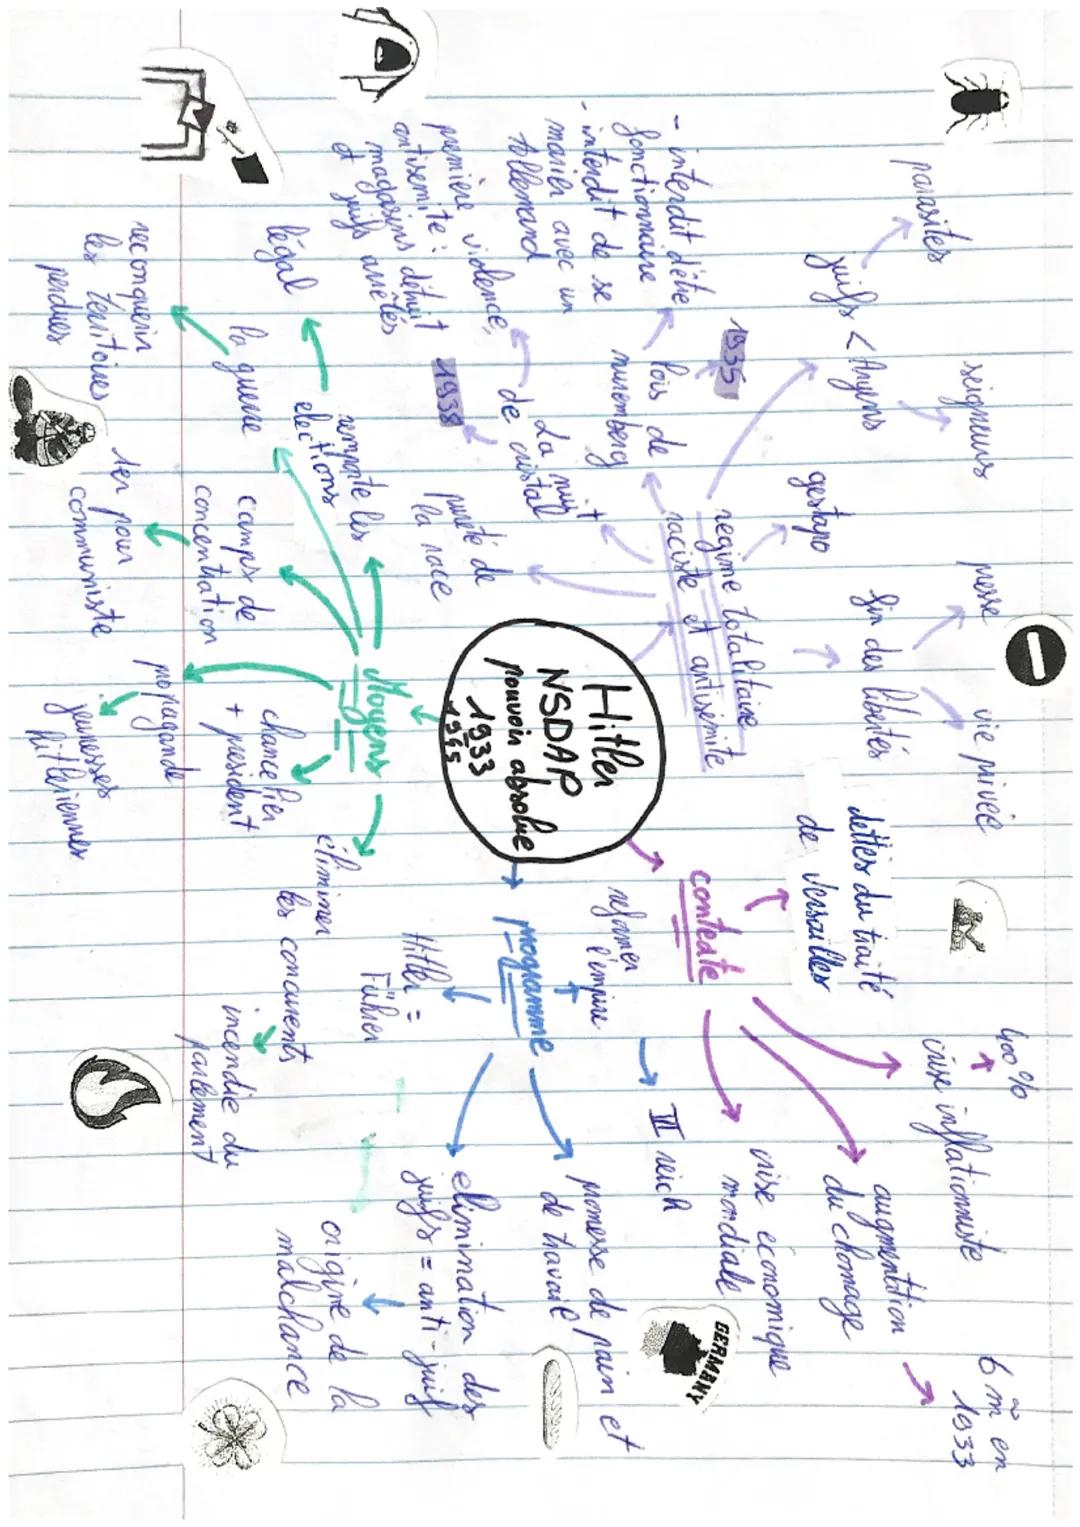 Hitler
NSDAP
pouvoir absolue
1933
1945
contexte
dettes du traité
de Versailles
400%
crise inflationniste
augmentation
du chomage
6 m̃ en
1933
crise economique
mondiale
programme
reformer
l'empire
III reich
promesse de pain et
de travail
elimination des
juifs = anti-juif
origine de la
malchance
Hitler =
Führer
GERMANY
Moyens
remporte les
elections
légal
la guerre
reconquerir
les térritoires
perdues
camps de
concentration
1er pour
communiste
propagande
jeunesses
hitleriennes
chancelier
+ president
éliminer
les concurents
incendie du
parlement
regime totalitaire
raciste et antisemite
gestapo
fin des libertés
presse
vie privée
juifs < Aryens
parasites
seigneurs
lois de
nuremberg
1935
- interdit d'être
fonctionnaire
- interdit de se
marier avec un
allemand
La nuit
de cristal
1938
première violence
antisemite:
magasins détruit
et juifs arrêtés
pureté de
la race